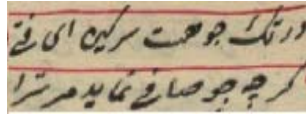 در تک جو هست سرگین ای فتی
گر چه جو صافی نماید مر ترا